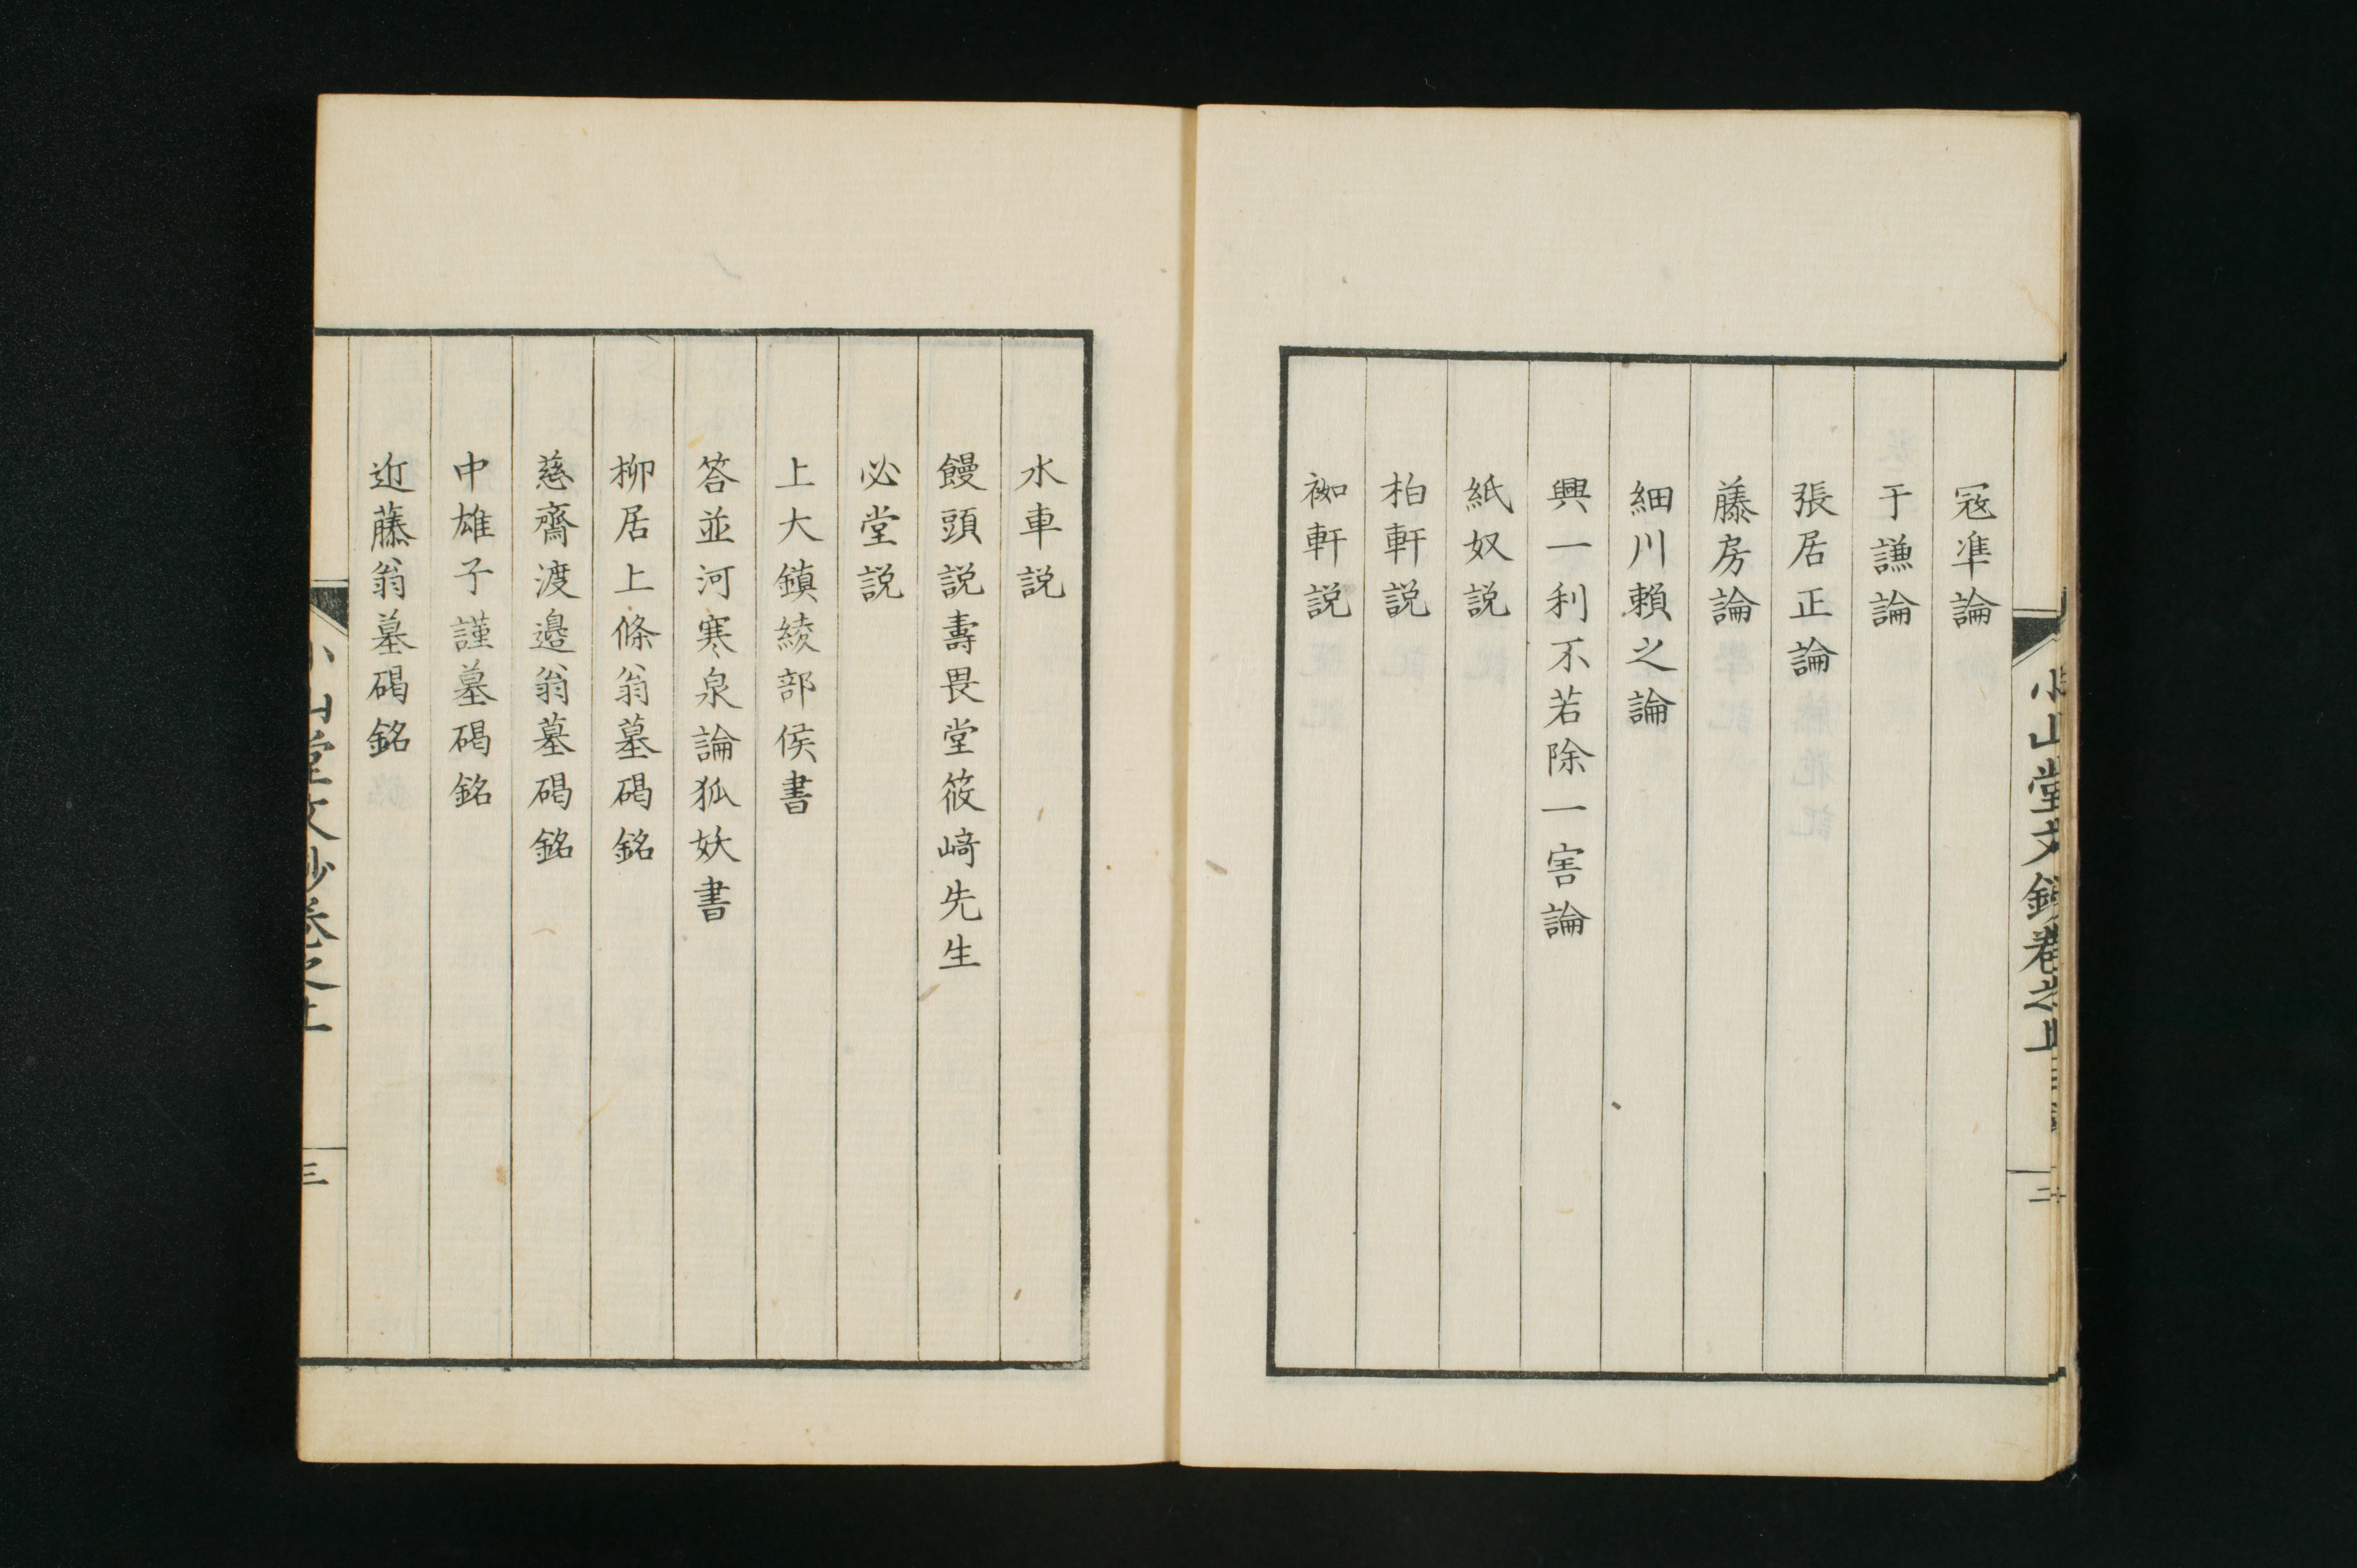 小山堂文鈔卷之上
二
寇準論
于謙論
張居正論
藤房論
細川賴之論
興一利不若除一害論
紙奴説
柏軒説
袽軒説
水車説
饅頭説壽畏堂筱﨑先生
必堂説
上大鎮綾部侯書
答並河寒泉論狐妖書
柳居上條翁墓碣銘
慈齋渡邉翁墓碣銘
中雄子謹墓碣銘
近藤翁墓碣銘
小山堂文鈔卷之上
三